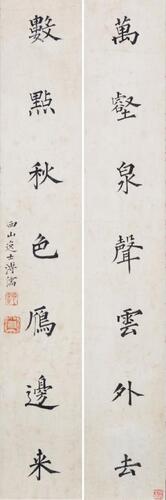 萬壑泉聲雲外去
數點秋色鴈邊来
西山逸士溥儒